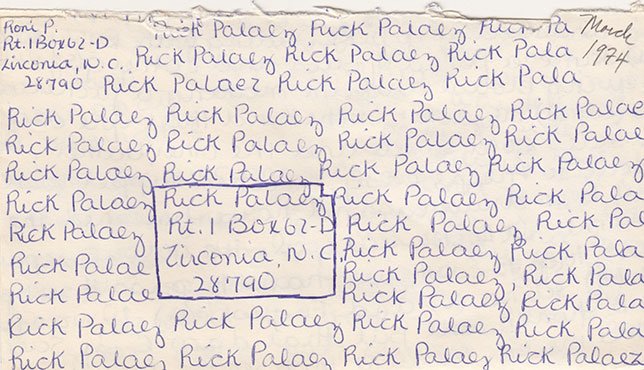 Roni P. Rick Palaez Rick Palaez Rick Pa March
Rt. 1 Box 62-D
Zirconia, N.C. Rick Palaez Rick Palaez Rick Pala 1974
28790 Rick Palaez Rick Palaez Rick Pala
Rick Palaez Rick Palaez Rick Palaez Rick Palae
Rick Palaez Rick Palaez Rick Palaez Rick Pala
Rick Palaez Rick Palaez Rick Palaez Rick Palaez
Rick Palaez Rick Palaez Rick Palaez Rick Pala
Rick Palaez Rt. 1 Box 62-D Rick Palaez Rick Pa
Rick Palae Zirconia, N.C. Rick Palaez Rick Pala
Rick Palaez, Rick Pala
Rick Palae 28790 Rick Palaez Rick Pala
Rick Palaez Rick Palaez Rick Palaez Rick Pala
Rick Palaez Rick Palaez Rick Palaez Rick Palaez